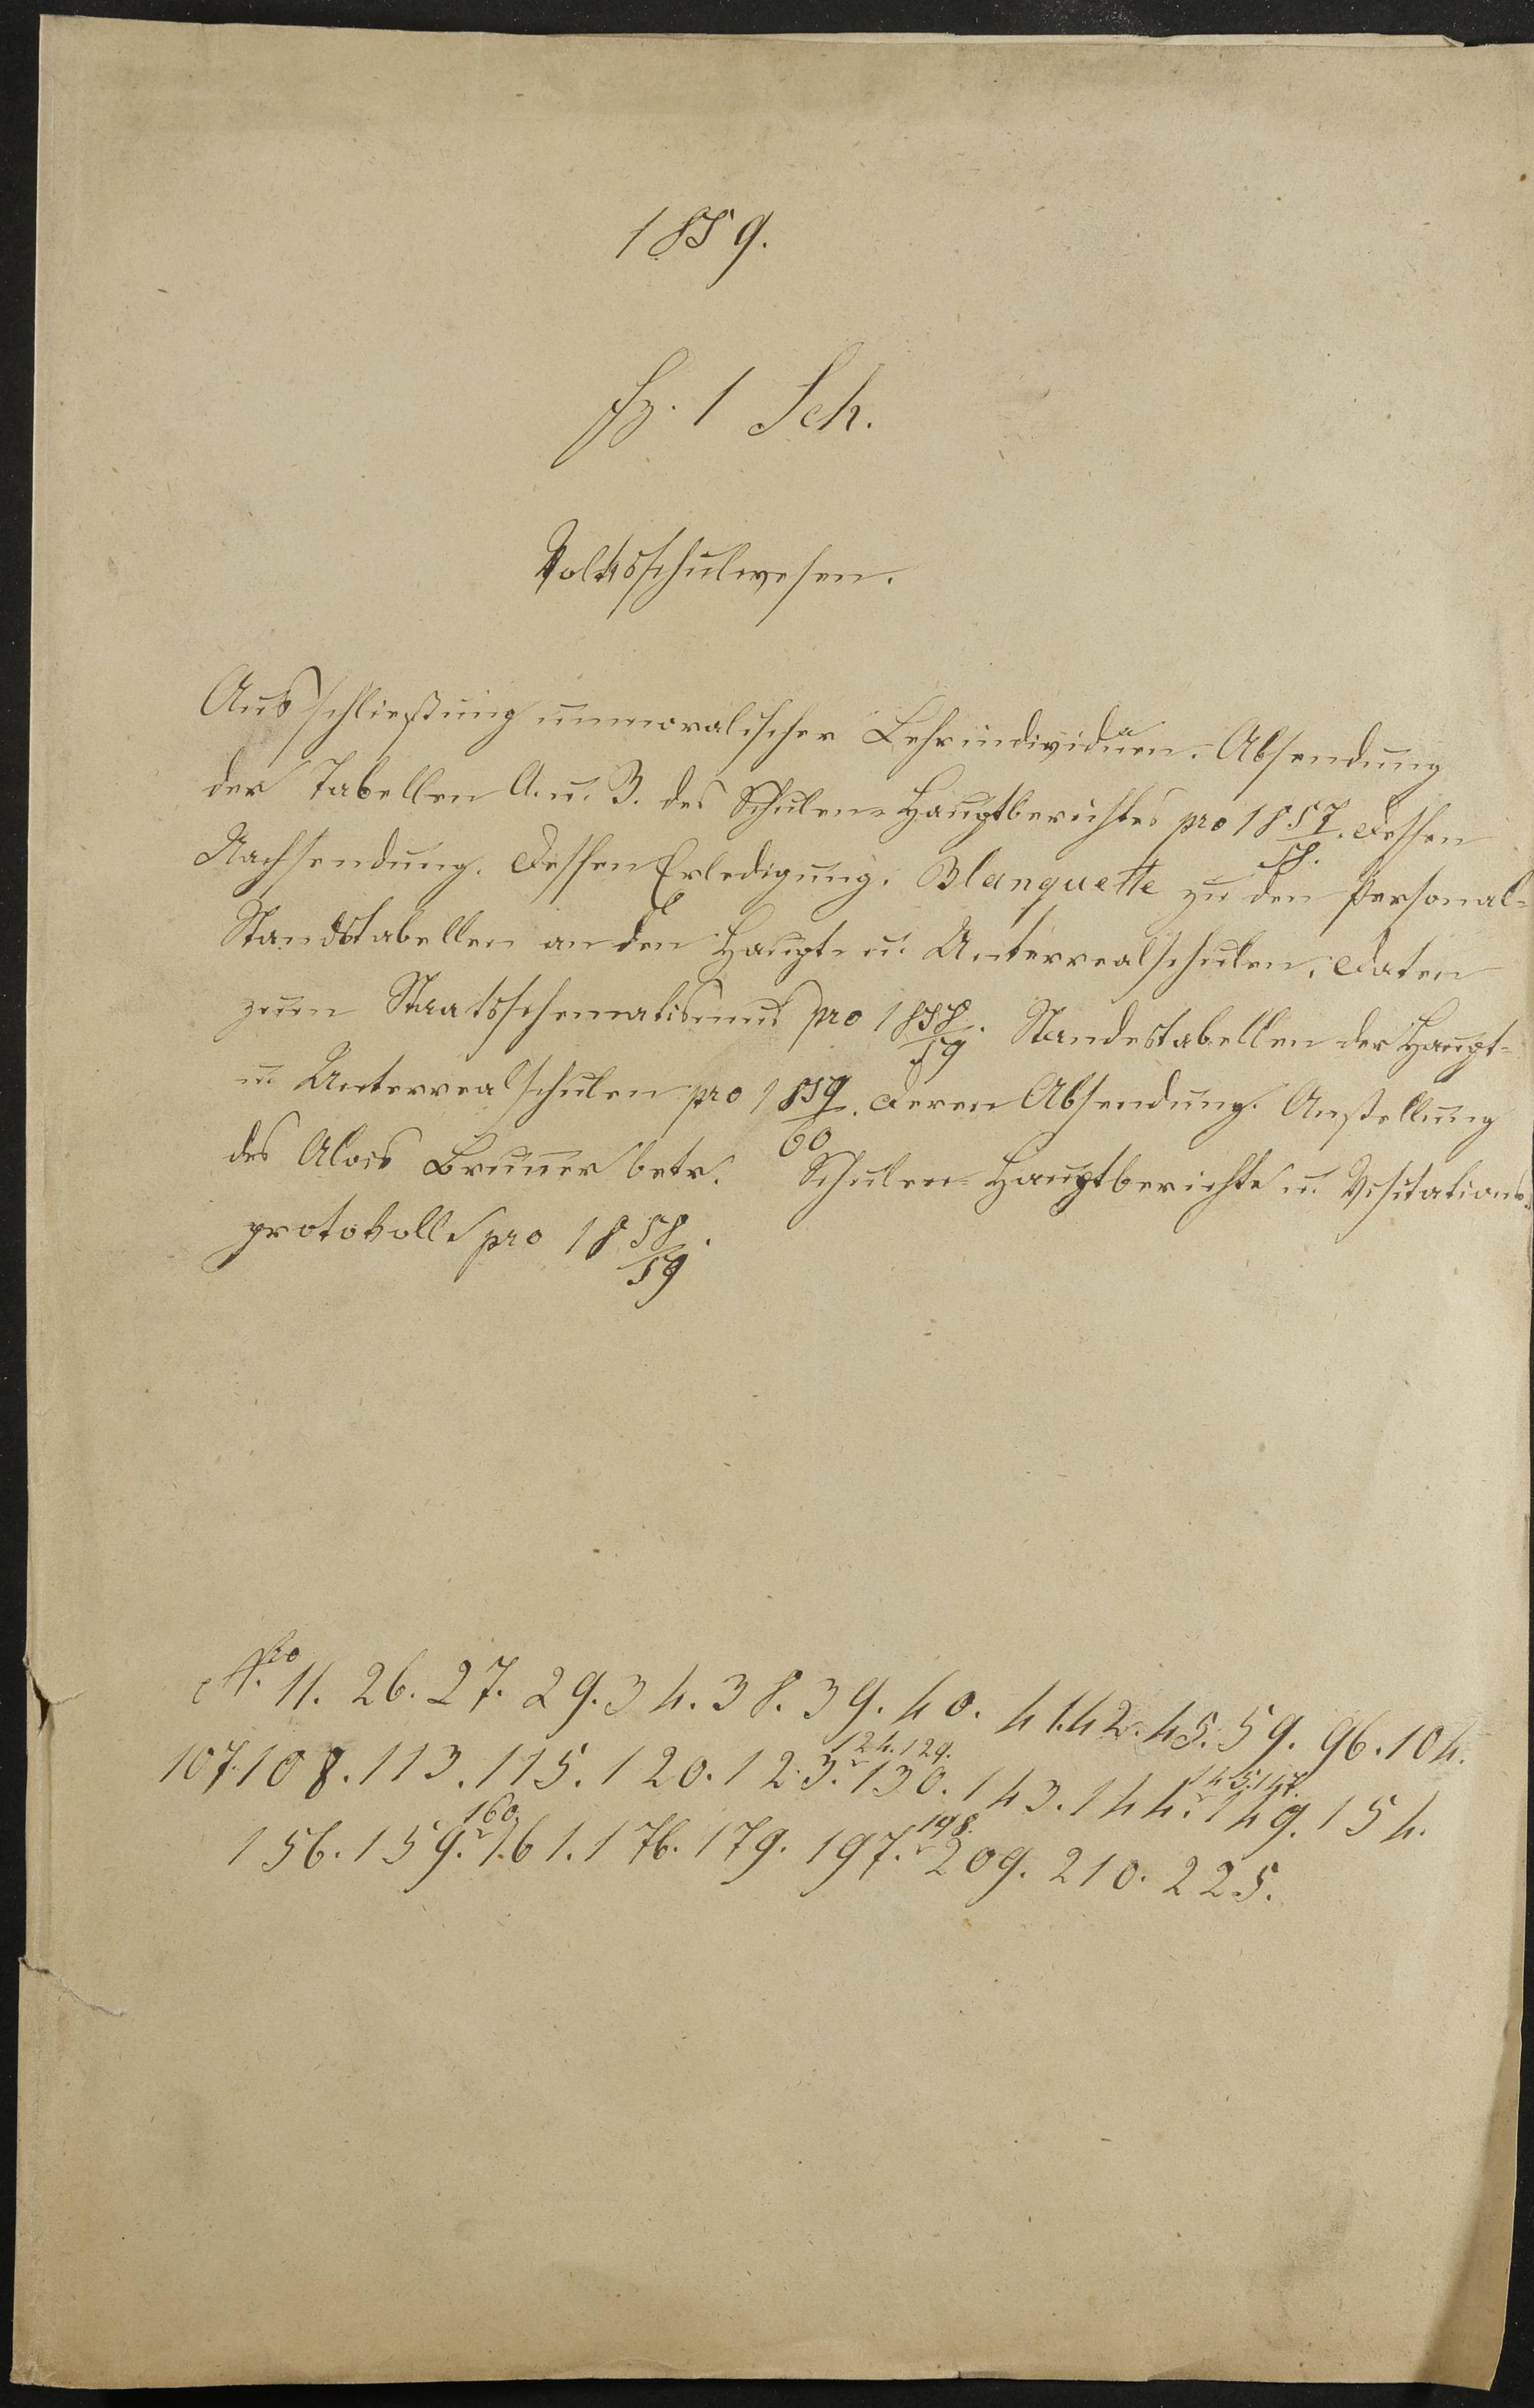 1859.
fz. 1 Sch.
Volksschulwesen.
Ausschließung unmoralischer Lehrindividuen. Absendung
der Tabellen A. u. B. des Schulen-Hauptberichtes pro 1857/58. Dessen
Nachsendung. Dessen Erledigung. Blanquette zu den Personal-
Standstabellen an den Haupt- u. Unterrealschulen. Daten
zum Staatsschematismus pro 1858/59. Standestabellen der Haupt-
u. Unterrealschulen pro 1859/60. Deren Absendung. Anstellung
des Alois Bruner betr. Schulen-Hauptberichte u. Visitations-
protokolle pro 1858/59.
Nro 11. 26. 27. 29. 34. 38. 39. 40. 41. 42. 45. 59. 96. 104.
107. 108. 113. 115. 120. 123. 124. 129. 130. 143. 144. 145. 147. 149. 154.
156. 159. 160. 161. 176. 179. 197. 198. 209. 210. 225.